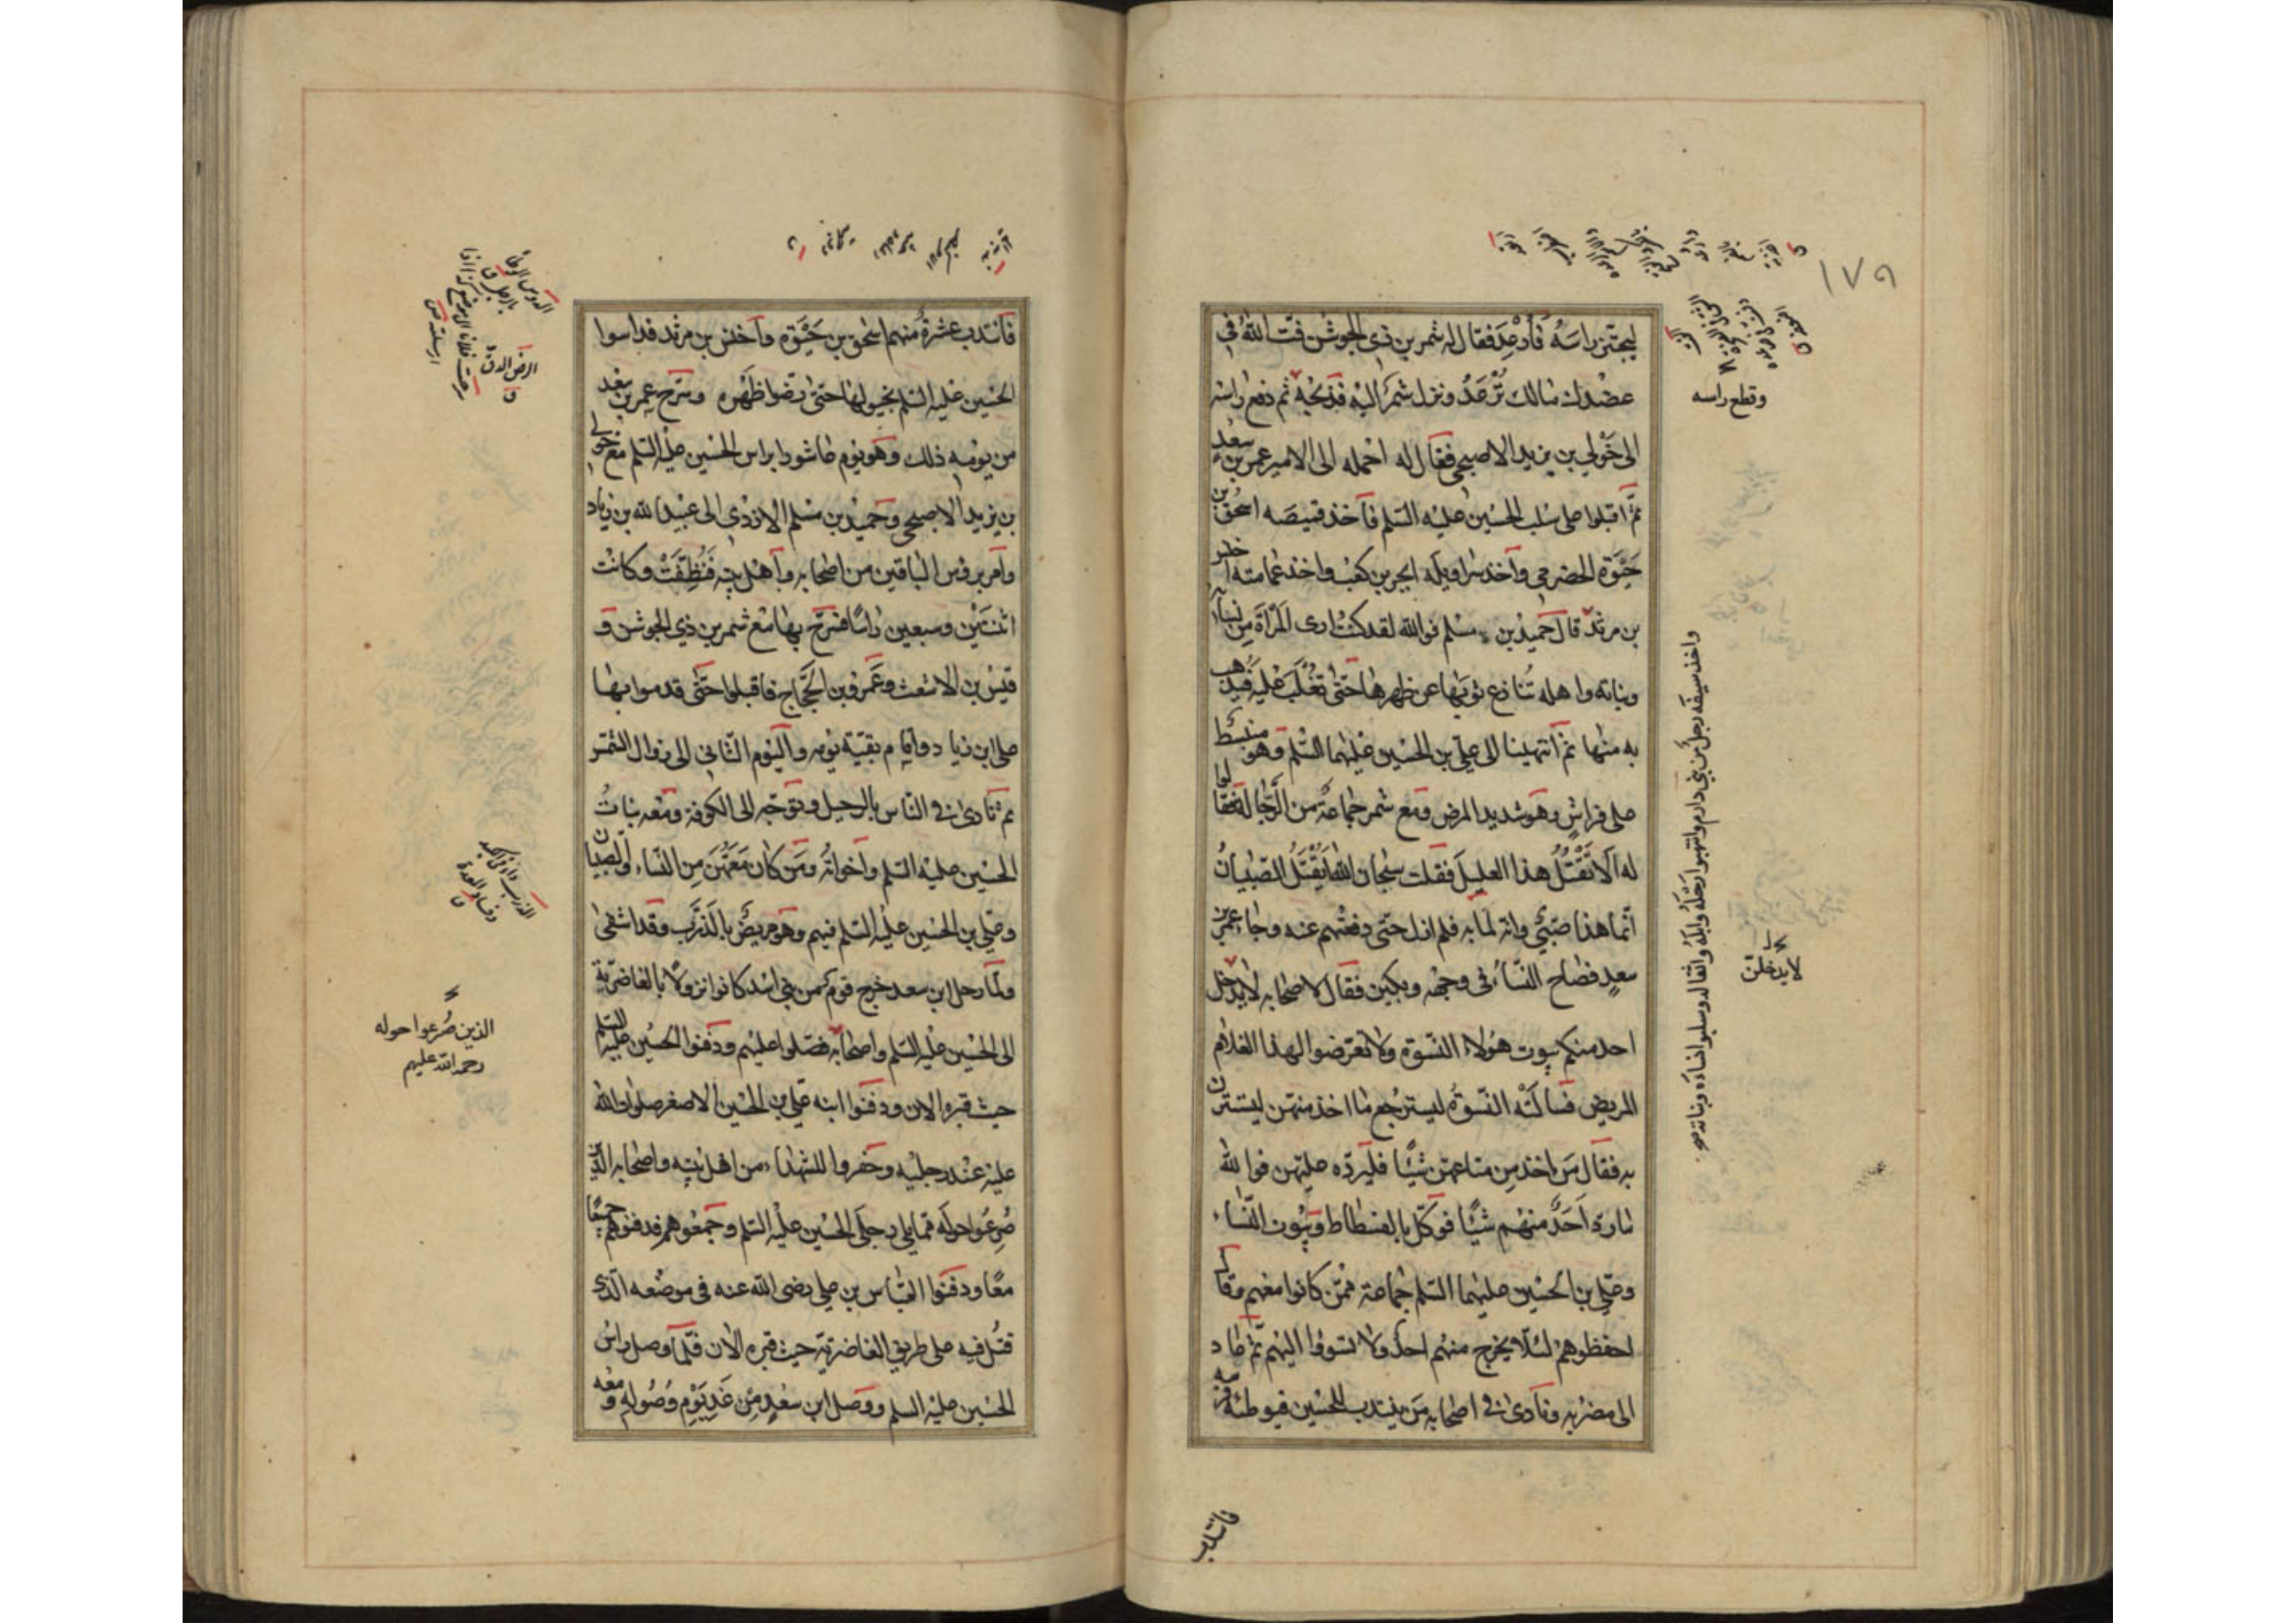 ١٧٩
ليجتز راسه فأُرعِدَ فقال له شمر بن ذي الجوشن فتّ الله في
عضدك مالك ترعد ونزل شمر اليه فذبحه ثم دفع راسه
الى خَوْلي بن يزيد الاصبحي فقال له احمله الى الامير عمر بن سعد
ثمّ اقبلوا على سلب الحسين عليه السلم فاخذ قميصه اسحق بن
حَيْوَة الحضرمي وآخذ سراويله ابجر بن كعب واخذ عمامته اخنس
بن مرثد قال حميد بن مسلم فوالله لقد كنت ارى المرأة من نسائه
وبناته واهله تُنازع ثوبها عن ظهرها حتّى تُغْلَبَ عليه فيذهب
به منها ثم انتهينا الى علي بن الحسين عليهما السلم وهو منبسط
على فراشٍ وهو شديد المرض ومع شمر جماعة من الرّجّالة فقالوا
له الا تقتل هذا العليل فقلت سبحان الله ايُقْتَلُ الصّبيان
انّما هذا صَبيّ وانه لما به فلم ازل حتى دفعتهم عنه وجاء عمر بن
سعدٍ فصاح النّساء في وجهه وبكين فقال لاصحابه لا يدخل
احد منكم بيوت هؤلاء النّسوة ولا تعرّضوا لهذا الغلام
المريض فسالَتْه النّسوَة ليسترجع ما اخذ منهن ليتسترن
به فقال مَن اخذ مِن متاعهن شيئًا فليردّه عليهن فوالله
ما ردّ اَحَدٌ منهم شيئًا فوكّل بالفسطاط وبيوت النّساء
وعليّ بن الحسين عليهما السلم جماعة ممّن كانوا معهم وقال
احفظوهم لئلّا يخرج منهم احدٌ ولا تسوؤا اليهم ثم عاد
الى مضربه ونادى في اصحابه مَن ينتدب للحسين فيوطئه فرسه
وقطع راسه
واخذ سيفه رجل من بني دارم وانتهبوا رَحْلَهُ وابلَهُ واثقاله وسلبوا نساءه وبناته صح
لا يدخلنّ
فانتدب
فانتدب عشرةٌ منهم اسحق بن حَيْوَة واخنس بن مرثد فداسوا
الحسين عليه السلم بخيولهم حتى رضّوا ظَهْره وسرّح عمر بن سعد
من يومه ذلك وهو يوم عاشورا براس الحسين عليه السلم مع خولي
بن يزيد الاصبحي وحميد بن مسلم الازدي الى عبيد الله بن زياد
وآمر بروس الباقين من اصحابه واهل بيته فَنُظِّفَتْ وكانت
اثنَيْن وسبعين راسًا فسَرّح بها مع شمر بن ذي الجوشن و
قيس بن الاشعث وعمرو بن الحَجّاج فاقبلوا حتّى قدموا بها
على ابن زياد واقام بقيّة يومه واليوم الثّاني الى زوال الشمس
ثم نادى في النّاس بالرحيل وتوجّه الى الكوفة ومعه بناتُ
الحسين عليه السلم واخواته ومَن كان معهن مِن النّساء والصبيان
وعليّ بن الحسين عليه السلم فيهم وهو مريضٌ بالذَّرَب وقد اشفى
ولمّا رحل ابن سعد خرج قوم من بني اسد كانوا نزولًا بالغاضريّة
الى الحسين عليه السلم واصحابه فصلّوا عليهم ودفنوا الحسين عليه السلم
حيث قبره الان ودفنوا ابنه علي بن الحسين الاصغر صلوات الله
عليه عند رجليه وحفروا للشهداء من اهل بيته واصحابه الذين
صُرِعُوا حوله ممّا يلي رجلي الحسين عليه السلم وجمعوهم فدفنوهم جميعًا
معًا ودفنوا العبّاس بن علي رضى الله عنه في موضعه الّذى
قتل فيه على طريق الغاضريّة حيث قبره الان فلمّا وصل راس
الحسين عليه السلم ووصل ابن سعدٍ مِن غدِ يَوْمِ وُصُوله ومعه
الذين صُرعوا حوله
رحمة الله عليهم